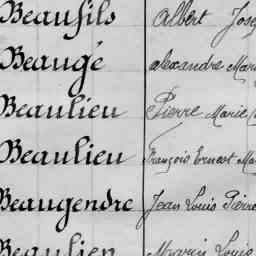 Beaufils Albert Jose
Beaugé Alexandre Mari
Beaulieu Pierre Marie
Beaulieu François Ernest Ma
Beaugendre Jean Louis Pierre
Beaulieu Louis